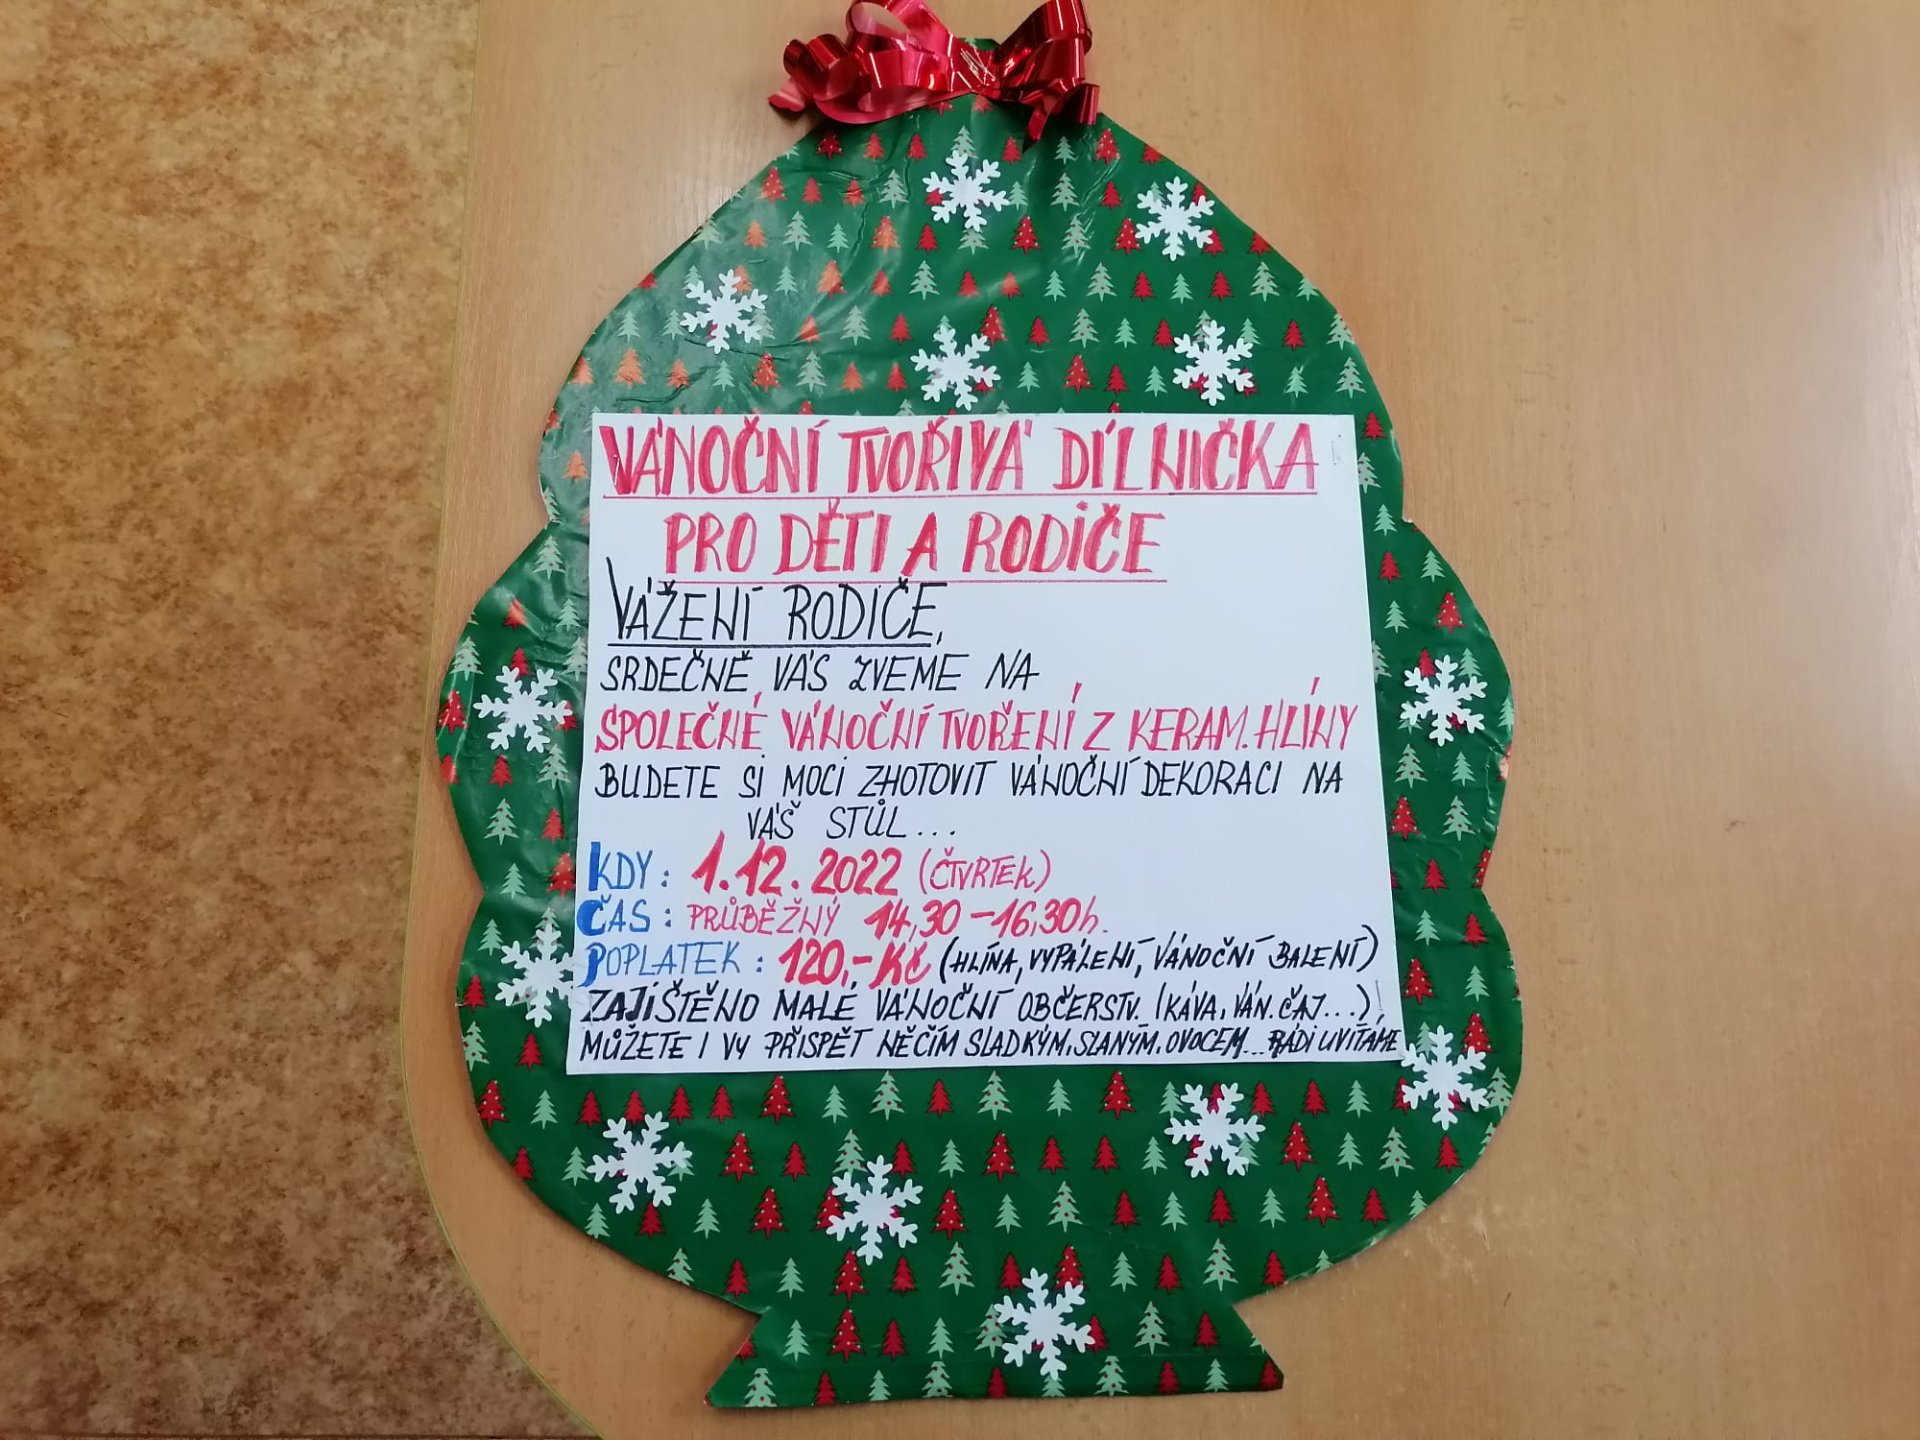 VÁNOČNÍ TVOŘIVÁ DÍLNIČKA
PRO DĚTI A RODIČE
VÁŽENÍ RODIČE,
SRDEČNĚ VÁS ZVEME NA
SPOLEČNÉ VÁNOČNÍ TVOŘENÍ Z KERAM. HLÍNY
BUDETE SI MOCI ZHOTOVIT VÁNOČNÍ DEKORACI NA
VÁŠ STŮL...
KDY: 1.12.2022 (ČTVRTEK)
ČAS: PRŮBĚŽNÝ 14,30-16,30h.
POPLATEK: 120,-Kč (HLÍNA, VYPÁLENÍ, VÁNOČNÍ BALENÍ)
ZAJIŠTĚNO MALÉ VÁNOČNÍ OBČERSTV. (KÁVA, VÁN. ČAJ...)!
MŮŽETE I VY PŘISPĚT NĚČÍM SLADKÝM, SLANÝM, OVOCEM... RÁDI UVÍTÁME